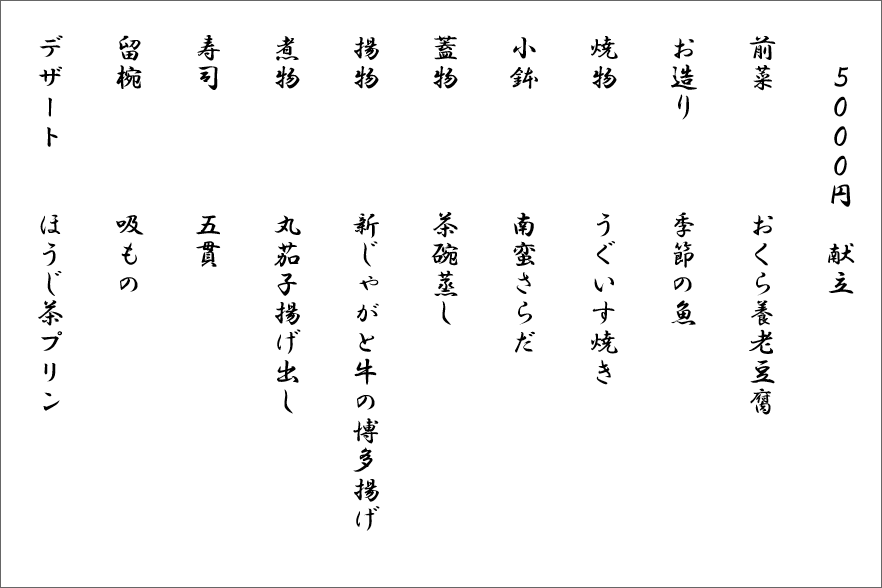 5000円　献立
前菜　おくら養老豆腐
お造り　季節の魚
焼物　うぐいす焼き
小鉢　南蛮さらだ
蓋物　茶碗蒸し
揚物　新じゃがと牛の博多揚げ
煮物　丸茄子揚げ出し
寿司　五貫
留椀　吸もの
デザート　ほうじ茶プリン